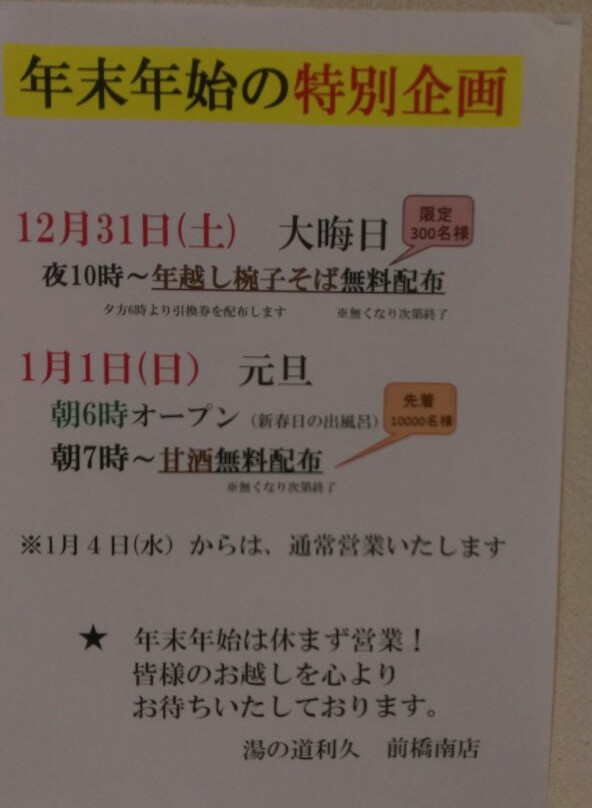 年末年始の特別企画
12月31日(土)　大晦日
限定
300名様
夜10時～年越し椀子そば無料配布
夕方6時より引換券を配布します　※無くなり次第終了
1月1日(日)　元旦
朝6時オープン（新春日の出風呂）
先着
10000名様
朝7時～甘酒無料配布
※無くなり次第終了
※1月４日(水）からは、通常営業いたします
★　年末年始は休まず営業！
皆様のお越しを心より
お待ちいたしております。
湯の道利久　前橋南店